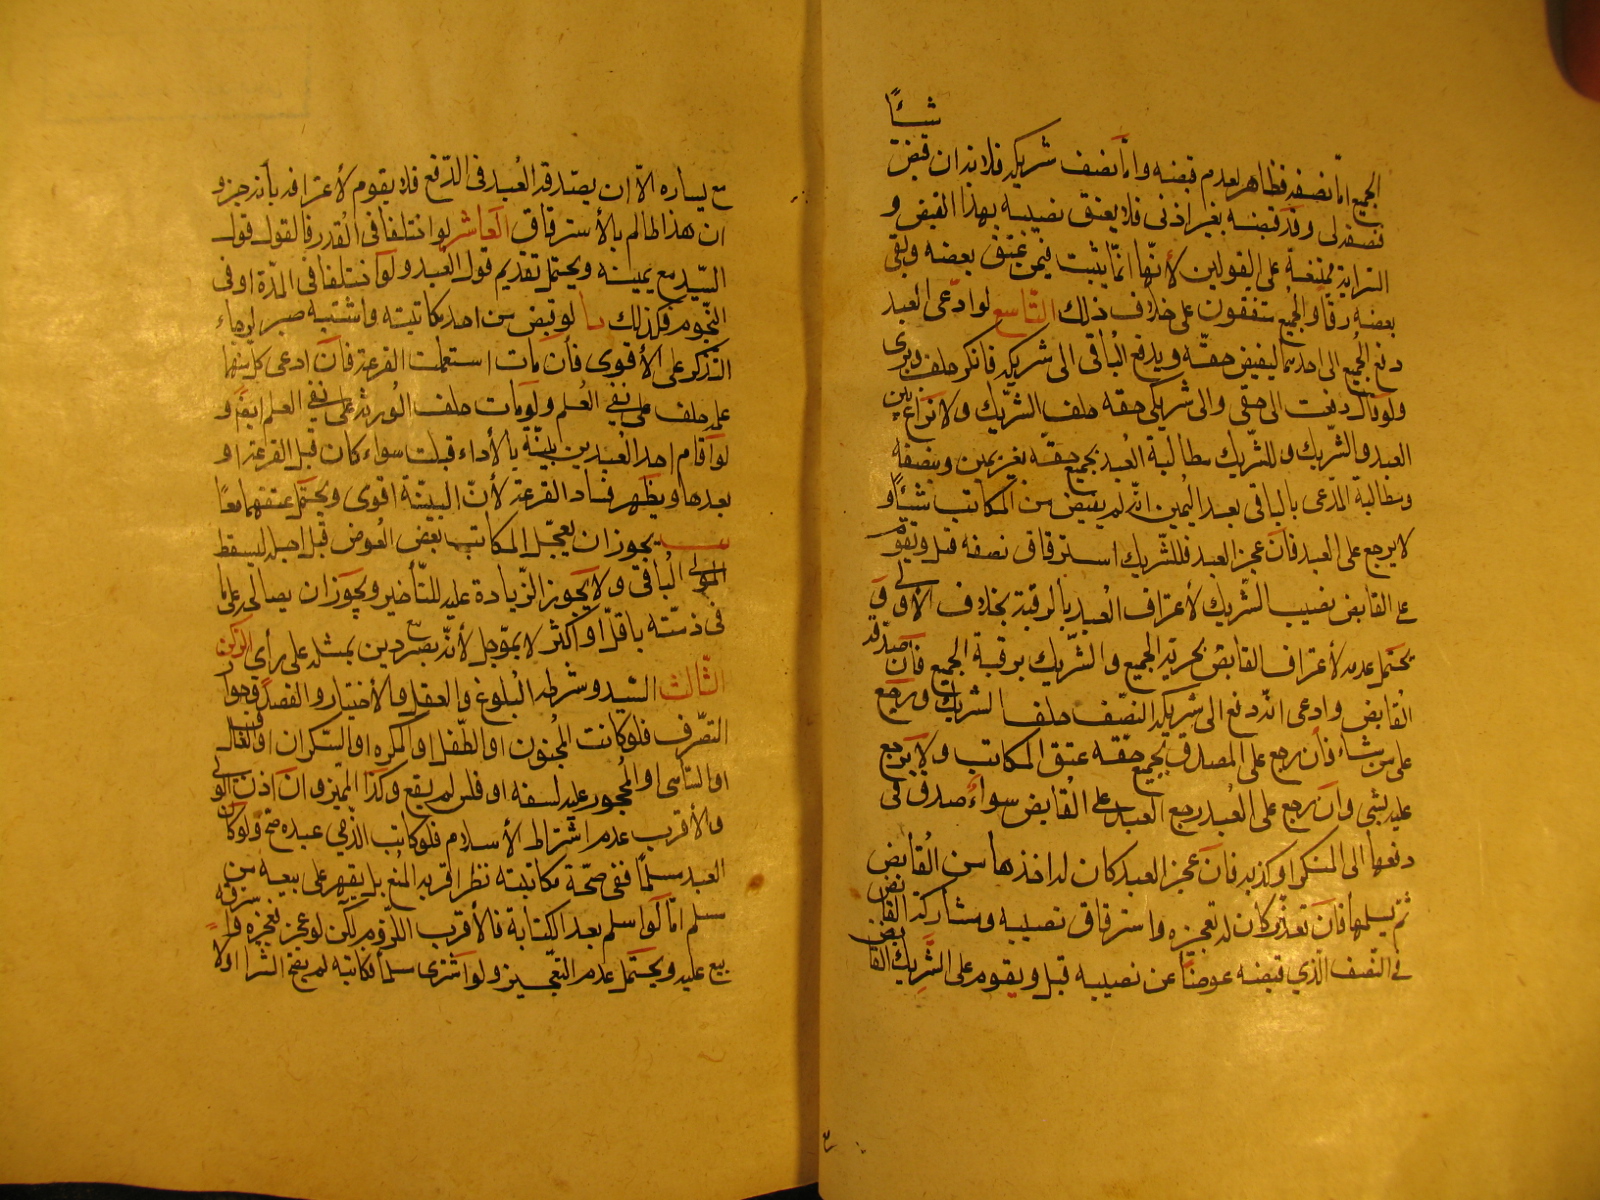 شيئًا
الجميع امّا نصفه فظاهر لعدم قبضه وامّا نصف شريكه فلا بد ان قبض
نصفه لى وقد قبضه بغير اذنى فلا يعتق نصيبه بهذا القبض و
السراية ممتنعة على القولين لأنّها انّما يثبت فيمن عتق بعضه وبقى
بعضه رقًّا والجميع متفقون على خلاف ذلك التاسع لو ادّعى العبد
دفع الجميع الى احدهما ليقبض حقّه ويدفع الباقى الى شريكه فانكر حلف وبرئ
ولو قال دفعت الى حقّى والى شريكى حقه حلف الشّريك ولا نزاع بين
العبد والشّريك وللشّريك مطالبة العبد بجميع حقّه بغير يمين وبنصفه
ومطالبة المدّعى بالباقى بعد اليمين انّه لم يقبض من المكاتب شيئًا و
لا يرجع على العبد فان عجز العبد فللشّريك استرقاق نصفه قيل ويقوّم
على القابض نصيب الشّريك لأعتراف العبد بالرقية بخلاف الأولى و
يحتمل عدمه لأعتراف القابض بحرية الجميع والشّريك برقية الجميع فان صدّقه
القابض وادعى انّه دفع الى شريكه النصف حلف الشريك ورجع
على من شاء فأن رجع على المصدق بجميع حقّه عتق المكاتب ولا يرجع
عليه بشئ وان رجع على العبد رجع العبد على القابض سواء صدق فى
دفعها الى المنكر او كذبه فان عجز العبد كان له اخذها من القابض
ثم يسلمها فان تعذر كان له تعجيزه واسترقاق نصيبه ومشاركة القابض
فى النّصف الّذي قبضه عوضًا عن نصيبه قيل ويقوم على الشّريك القابض
مع يساره الّا ان يصدقه العبد فى الدّفع فلا يقوم لأعترافه بأنه حرّ و
ان هذا ظالم بالأسترقاق العاشر لو اختلفا فى القدر فالقول قول
السّيد مع يمينه ويحتمل تقديم قول العبد ولو اختلفا فى المدّة او فى
النّجوم فكذلك يا لو قبض من احد مكاتبيه واشتبه صبر لرجاء
التّذكر على الأقوى فأن مات استعملت القرعة فان ادعى كل منهما
علمه حلف على نفى العلم ولو مات حلف الورثة على نفى العلم ايضًا و
لو اقام احد العبدين بيّنة بالأداء قبلت سواء كان قبل القرعة او
بعدها ويظهر فساد القرعة لأنّ البيّنة اقوى ويحتمل عتقهما معًا
يب يجوز ان يعجّل المكاتب بعض العوض قبل اجله ليسقط
المولى الباقى ولا يجوز الزّيادة عليه للتّأخير ويجوز ان يصالحه على ما
فى ذمّته بأقلّ او أكثر لا بمؤجل لأنّه يصير بيع دين بمثله على رأى الرّكن
الثّالث السّيد وشرطه البلوغ والعقل والأختيار والقصد وجواز
التصّرف فلو كاتب المجنون او الطّفل او المكره او السّكران او الغافل
او النّاسى او المحجور عليه لسفه او فلس لم يقع وكذا المميّز وان اذن الولى
والأقرب عدم اشتراط الأسلام فلو كاتب الذّمى عبده صح ولو كان
العبد مسلمًا ففى صحّة مكاتبته نظر اقربه المنع بل يقهر على بيعه من
مسلم امّا لو اسلم بعد الكتابة فالأقرب اللّزوم لكن لو عجز فعجّزه مولاه
بيع عليه ويحتمل عدم التّعجيز ولو اشترى مسلمًا فكاتبه لم يصح الشّراء ولا